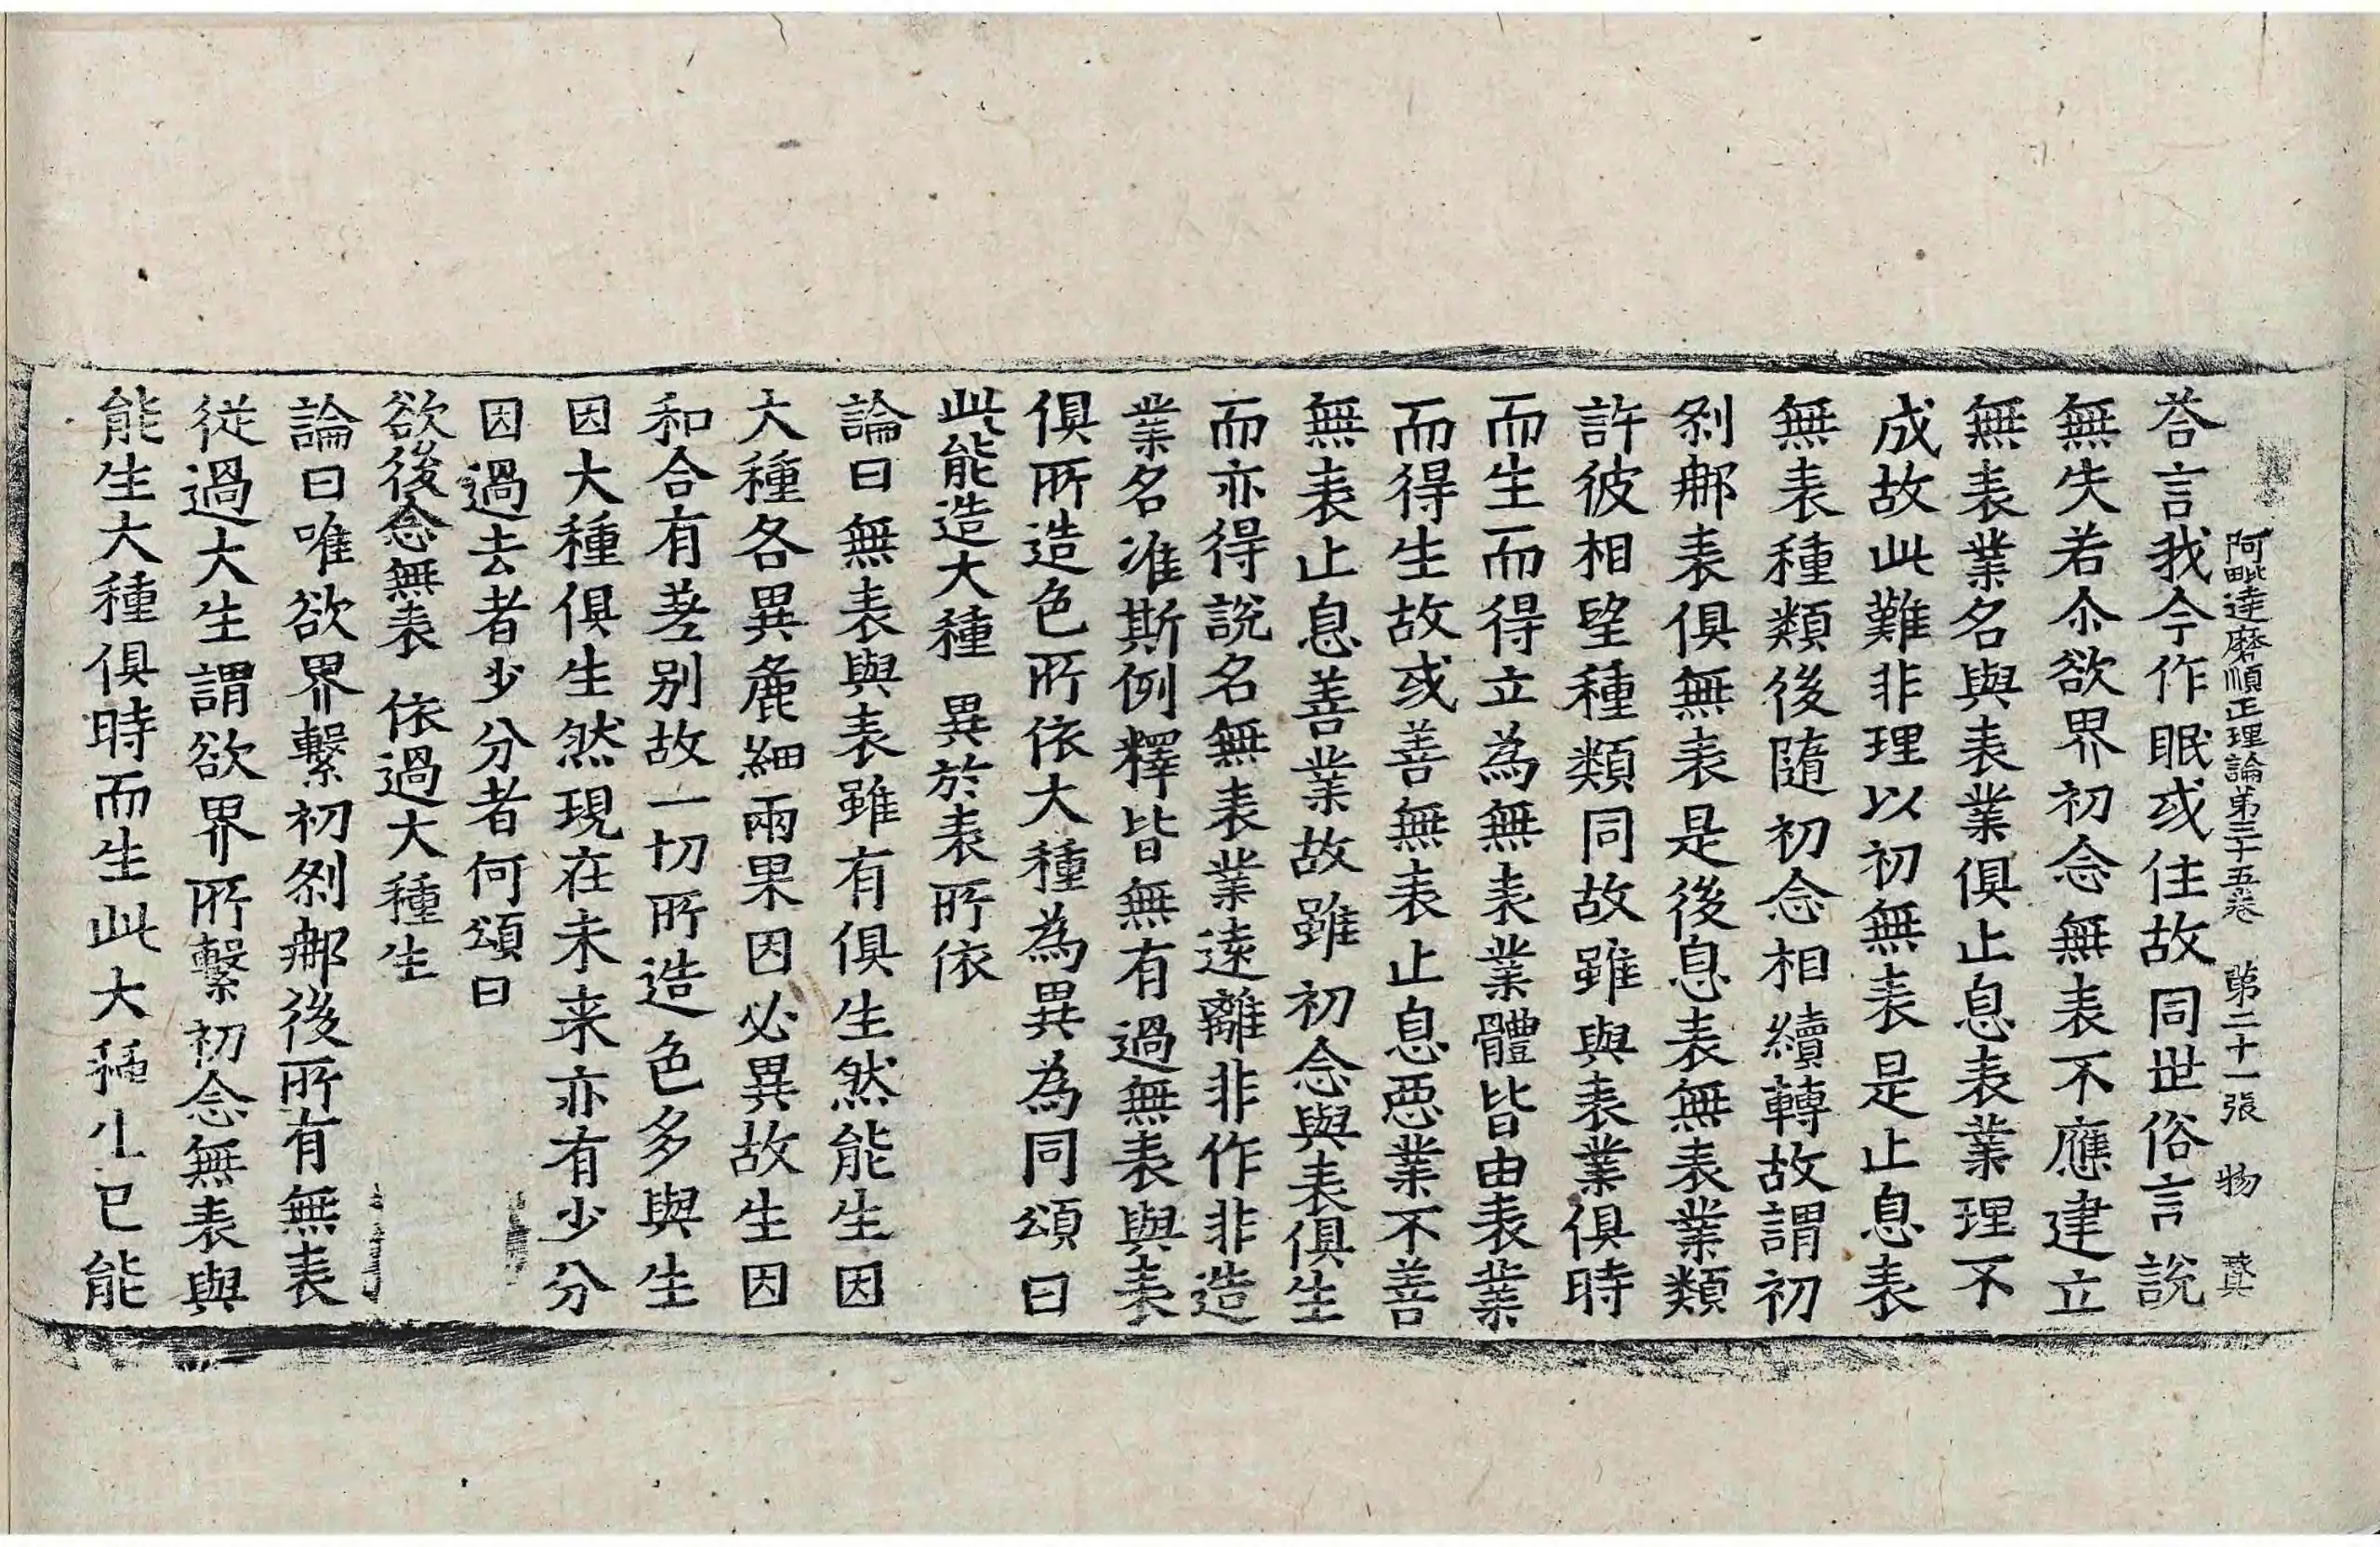 阿毗達磨順正理論第三十五卷　第二十一張　物
荅言我今作眠或住故同世俗言說
無失若尒欲界初念無表不應建立
無表業名與表業俱止息表業理不
成故此難非理以初無表是止息表
無表種類後隨初念相續轉故謂初
剎那表俱無表是後息表無表業類
許彼相望種類同故雖與表業俱時
而生而得立為無表業體皆由表業
而得生故或善無表止息惡業不善
無表止息善業故雖初念與表俱生
而亦得說名無表業遠離非作非造
業名准斯例釋皆無有過無表與表
俱所造色所依大種為異為同頌曰
此能造大種　異於表所依
論曰無表與表雖有俱生然能生因
大種各異麁細兩果因必異故生因
和合有差别故一切所造色多與生
因大種俱生然現在未来亦有少分
因過去者少分者何頌曰
欲後念無表　依過大種生
論曰唯欲界繫初剎那後所有無表
從過大生謂欲界所繫初念無表與
能生大種俱時而生此大種生已能